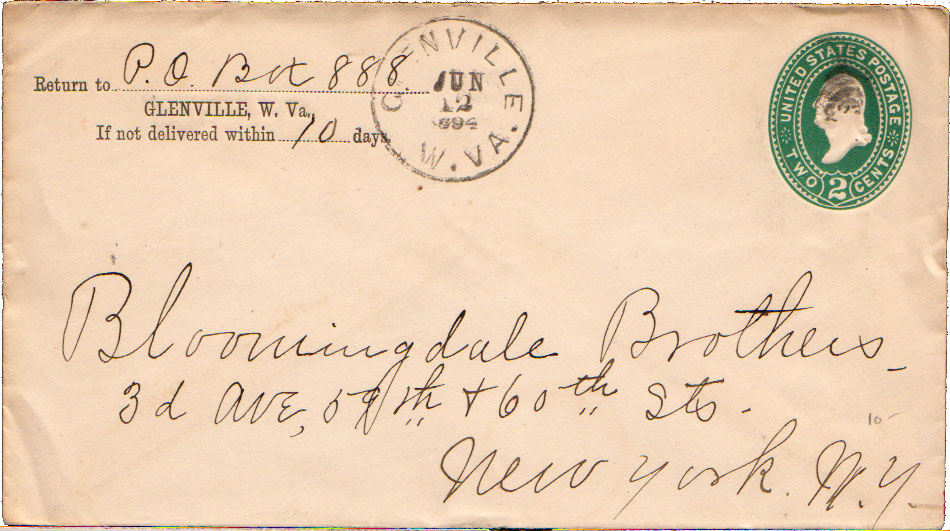 Return to P. O. Box 888
GLENVILLE, W. Va.,
If not delivered within 10 days.
GLENVILLE
JUN
12
1894
W. VA.
UNITED STATES POSTAGE
TWO 2 CENTS
Bloomingdale Brothers
3d Ave, 59th & 60th Sts.
10-
New York. N.Y.